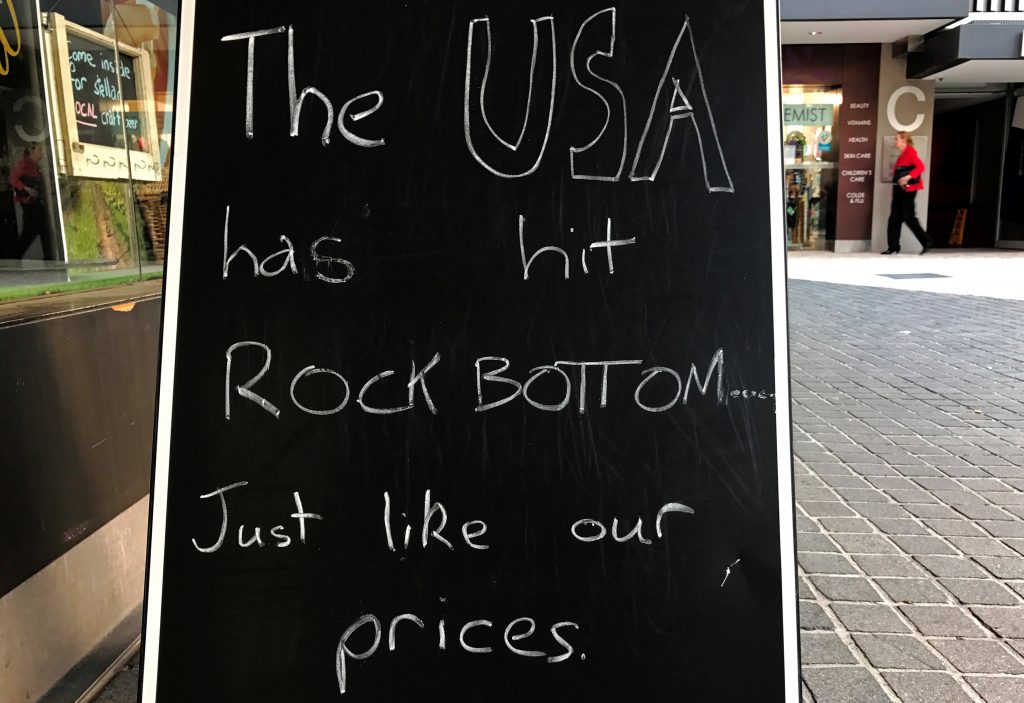 The USA
has hit
ROCK BOTTOM....
Just like our
prices.
come inside
for stellar
LOCAL
craft beer
EMIST
BEAUTY
VITAMINS
HEALTH
SKIN CARE
CHILDREN'S
CARE
COLDS
& FLU
C